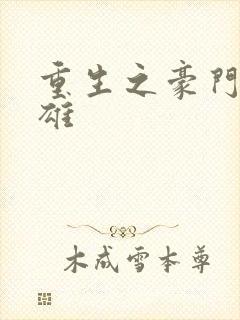 重生之豪門
雄
木成雪本尊